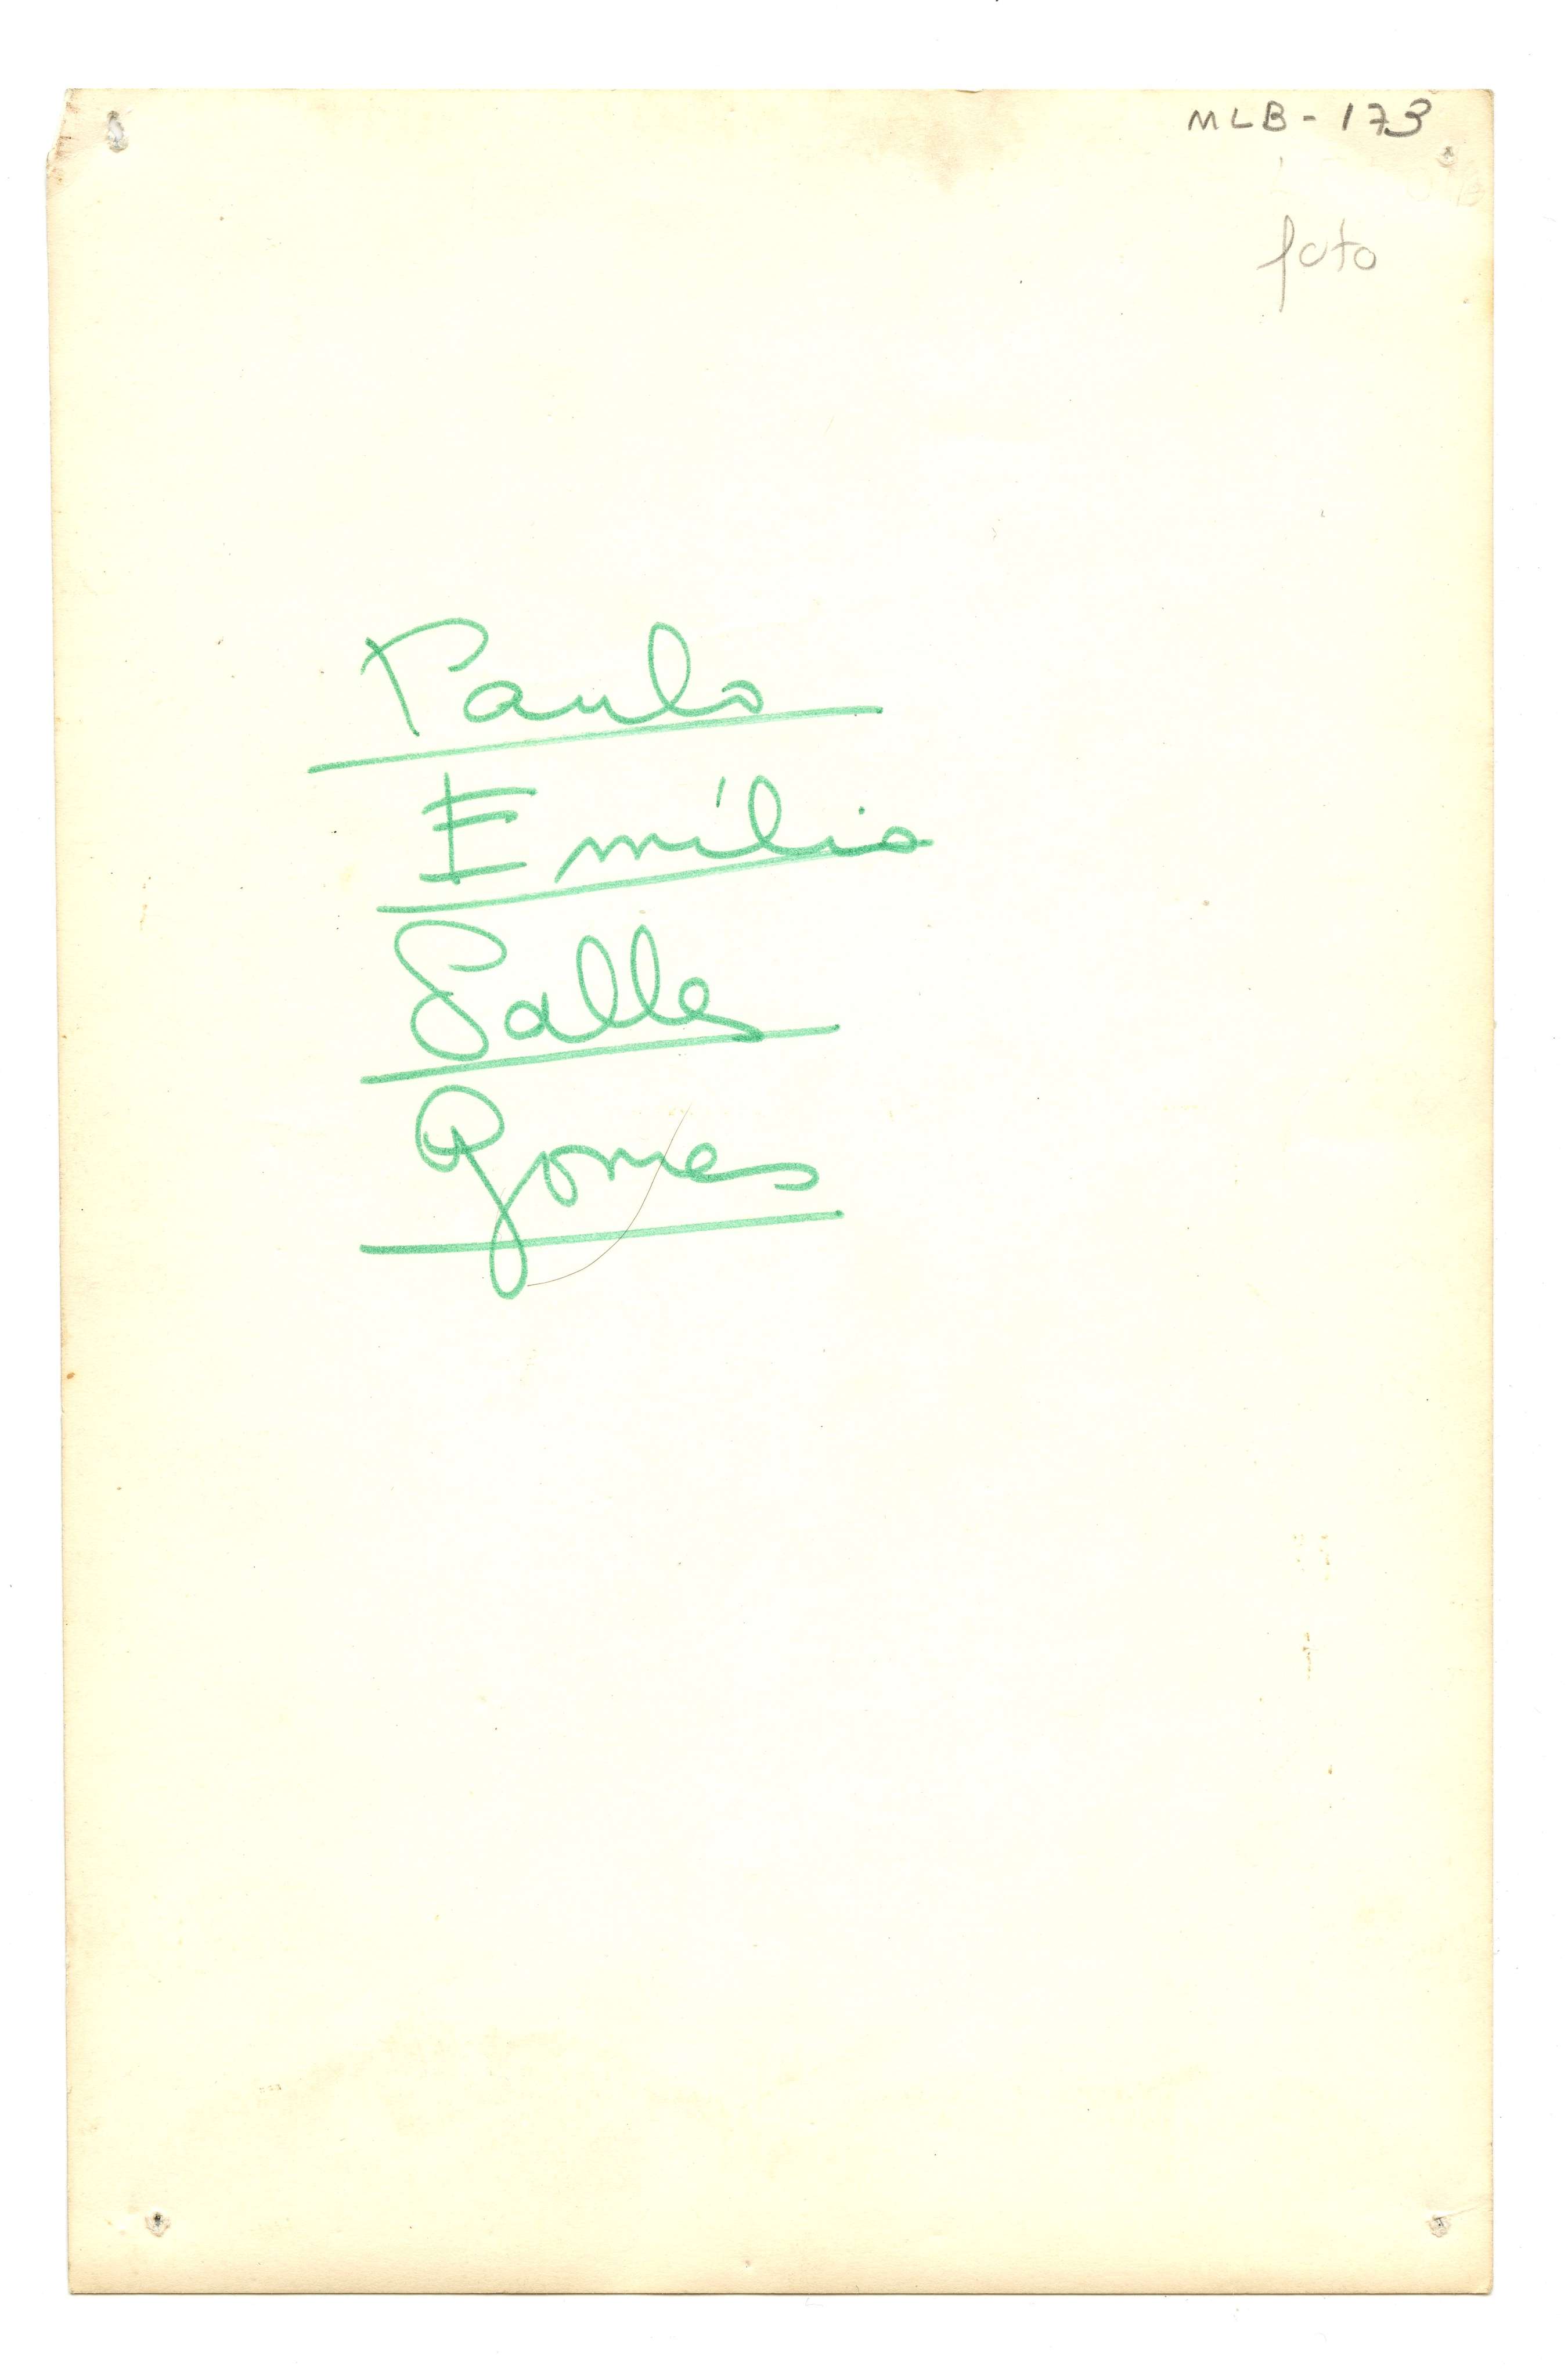 MLB-173
foto
Paulo
Emílio
Salles
Gomes